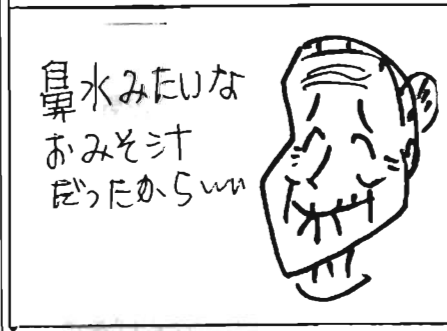 鼻水みたいな
おみそ汁
だったからいい